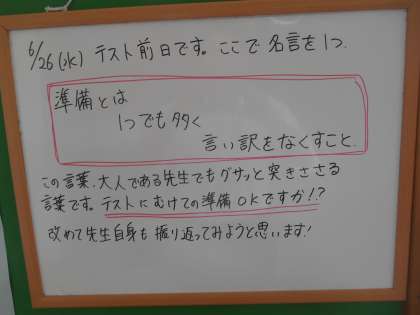 6/26(水) テスト前日です。ここで名言を1つ。
準備とは
1つでも多く
言い訳をなくすこと。
この言葉、大人である先生でもグサッと突きささる
言葉です。テストにむけての準備OKですか!?
改めて先生自身も振り返ってみようと思います!